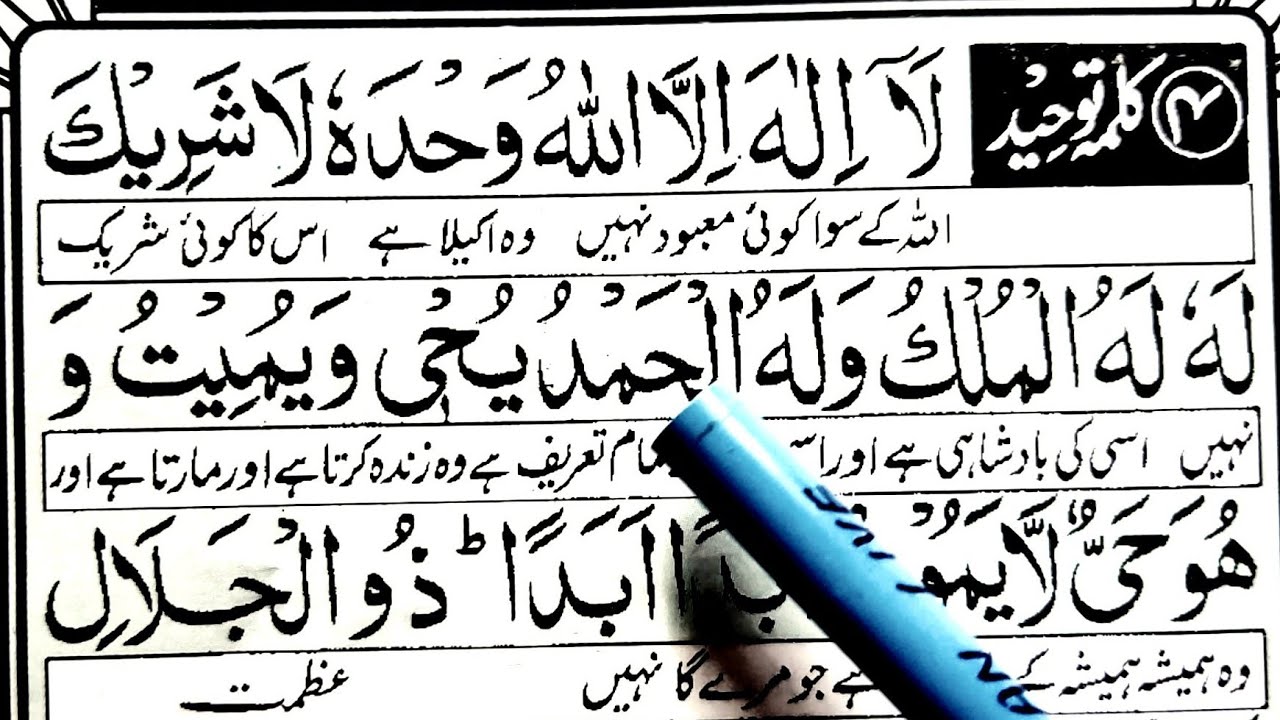 ۴ کلمہ توحید لَآ اِلٰهَ اِلَّا اللّٰهُ وَحْدَهٗ لَا شَرِيْكَ
اللہ کے سوا کوئی معبود نہیں وہ اکیلا ہے اس کا کوئی شریک
لَهٗ لَهُ الْمُلْكُ وَلَهُ الْحَمْدُ يُحْىٖ وَيُمِيْتُ وَ
نہیں اسی کی بادشاہی ہے اور تعریف ہے وہ زندہ کرتا ہے اور مارتا ہے اور
هُوَ حَىٌّ لَّا اَبَدًا ؕ ذُو الْجَلَالِ
وہ ہمیشہ ہمیشہ کے ہے جو مرے گا نہیں عظمت